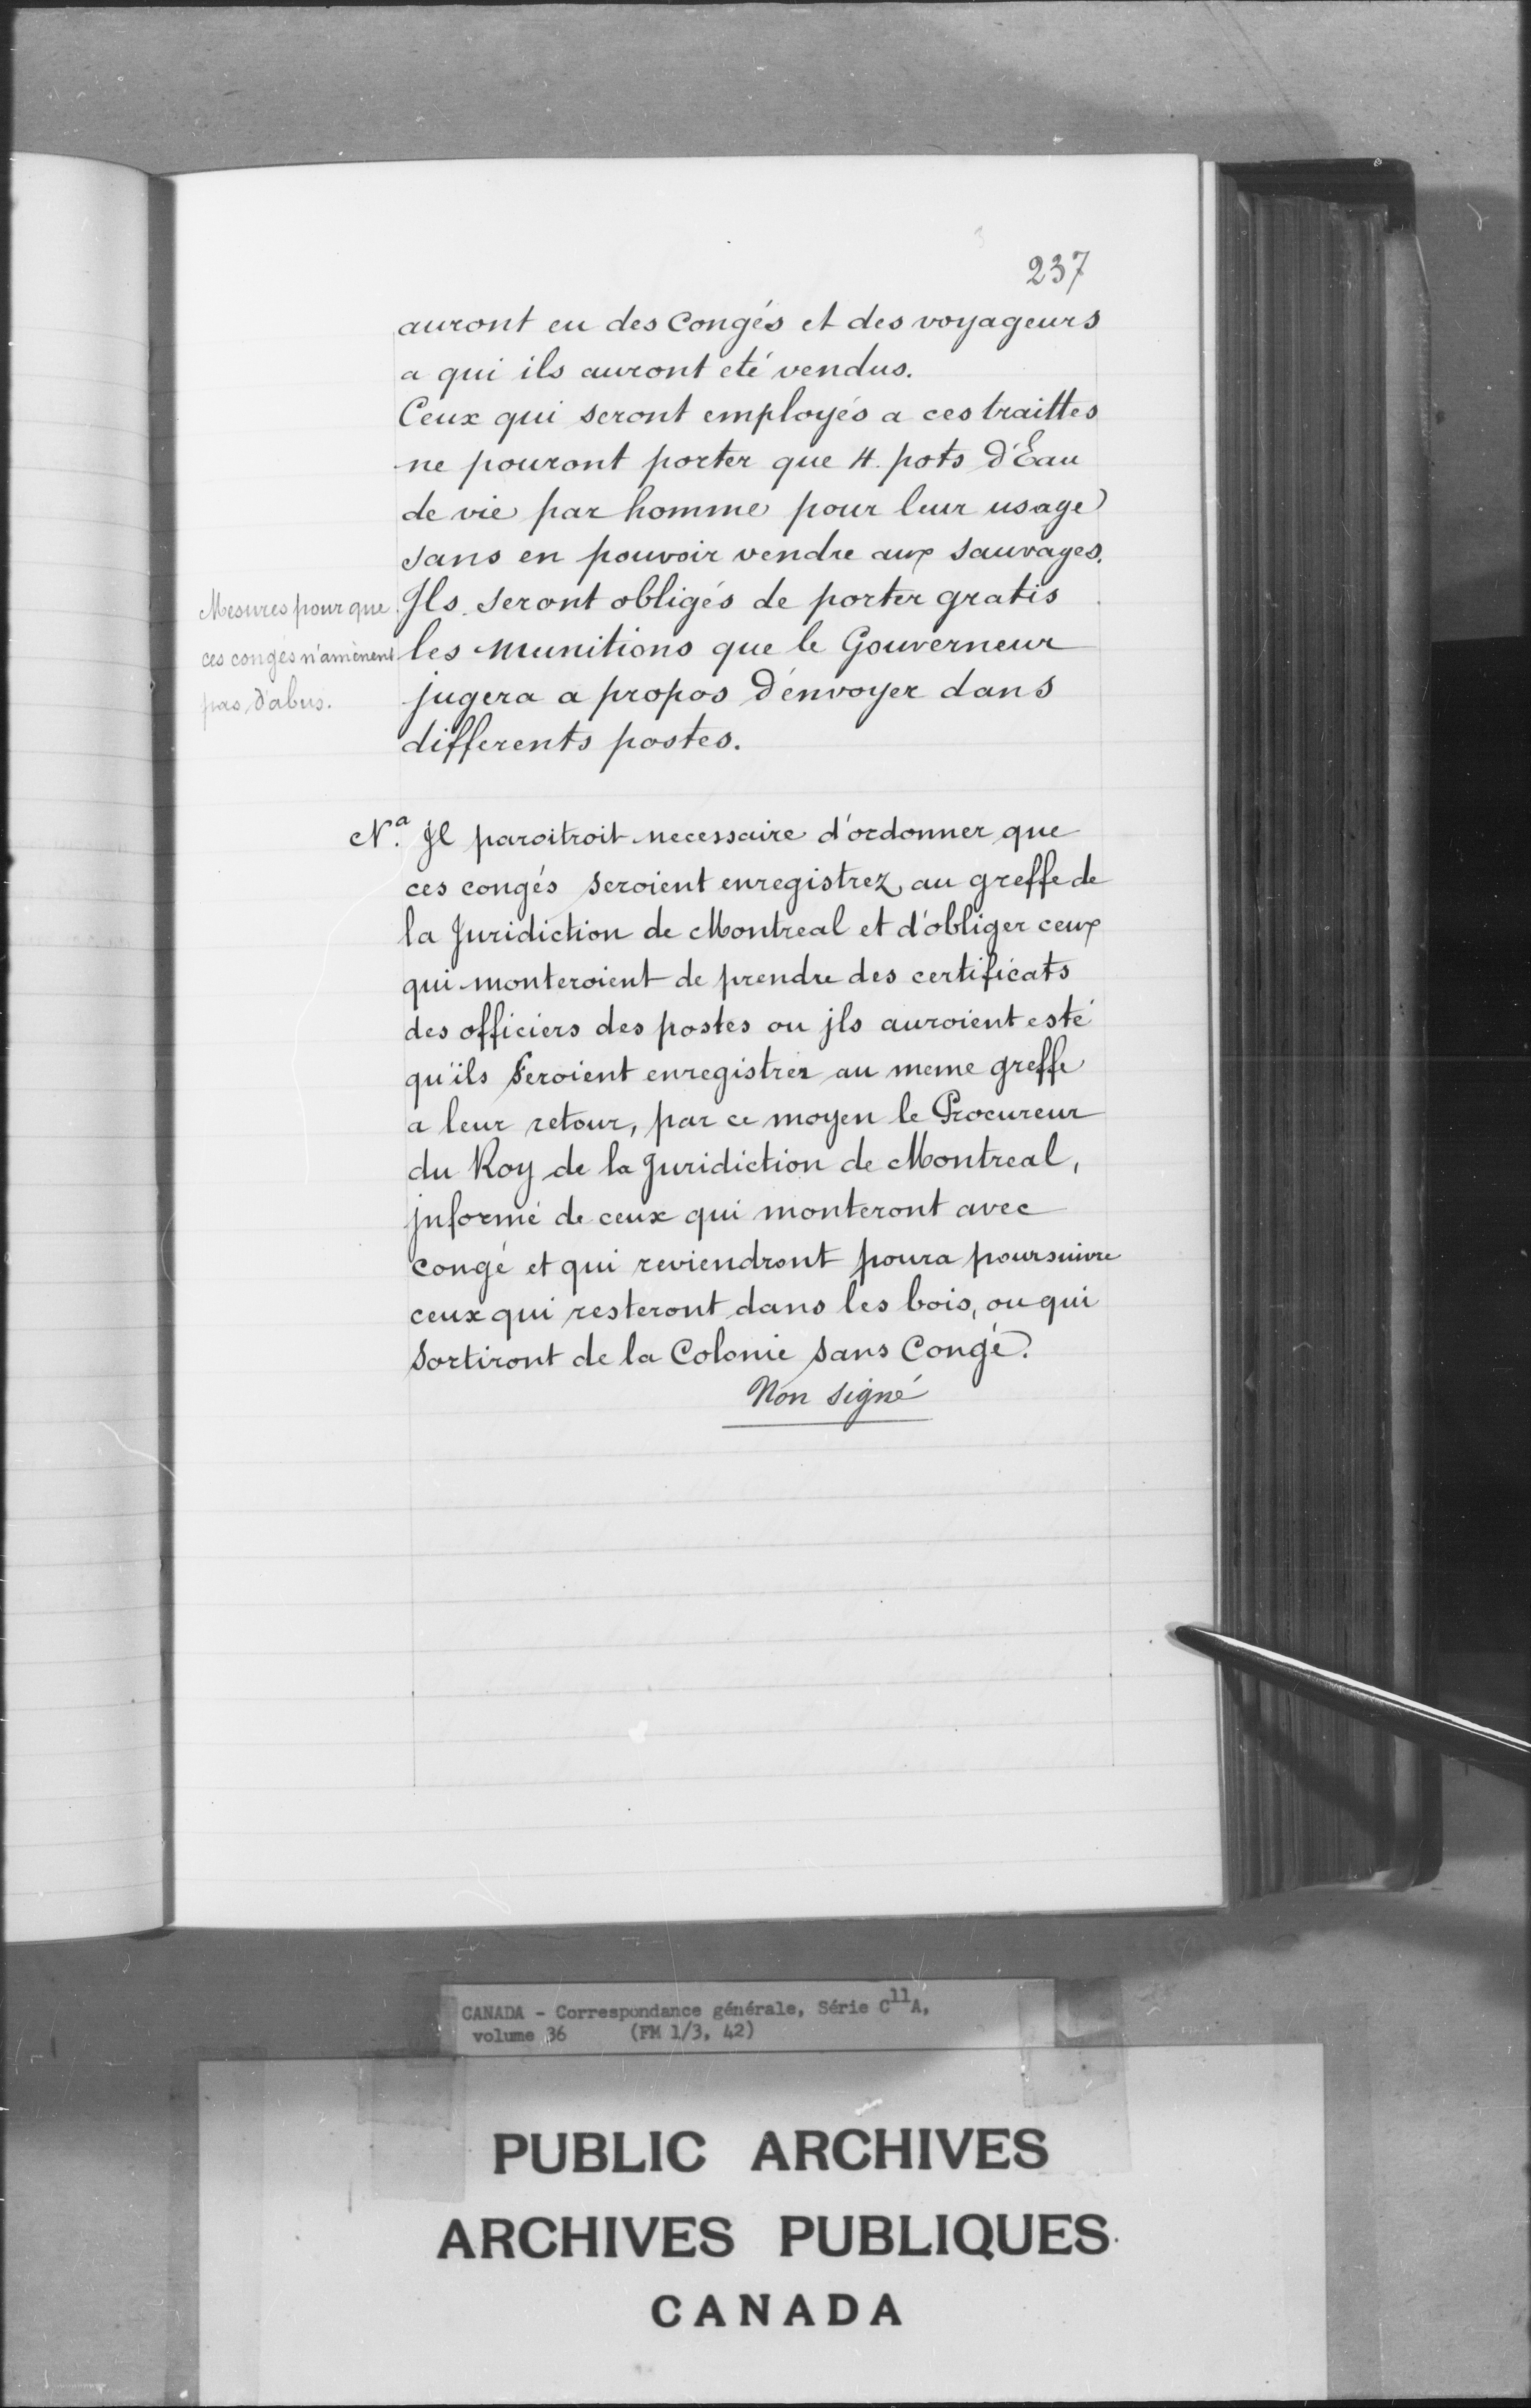 237
auront eu des Congés et des voyageurs
a qui ils auront eté vendus.
Ceux qui seront employés a ces traittes
ne pouront porter que 4. pots d'Eau
de vie par homme pour leur usage
sans en pouvoir vendre aux Sauvages.
Jls seront obligés de porter gratis
les munitions que le Gouverneur
jugera a propos d'envoyer dans
differents postes.
Mesures pour que
ces congés n'amènent
pas d'abus.
N.a Jl paroitroit necessaire d'ordonner que
ces congés seroient enregistrez au greffe de
la Juridiction de Montreal et d'obliger ceux
qui monteroient de prendre des certificats
des officiers des postes ou jls auroient esté
qu'ils feroient enregistrer au meme greffe
a leur retour, par ce moyen le Procureur
du Roy de la Juridiction de Montreal,
jnformé de ceux qui monteront avec
congé et qui reviendront poura poursuivre
ceux qui resteront dans les bois, ou qui
sortiront de la Colonie sans Congé.
Non signé
CANADA - Correspondance générale, Série C11A,
volume 36 (FM 1/3, 42)
PUBLIC ARCHIVES
ARCHIVES PUBLIQUES
CANADA